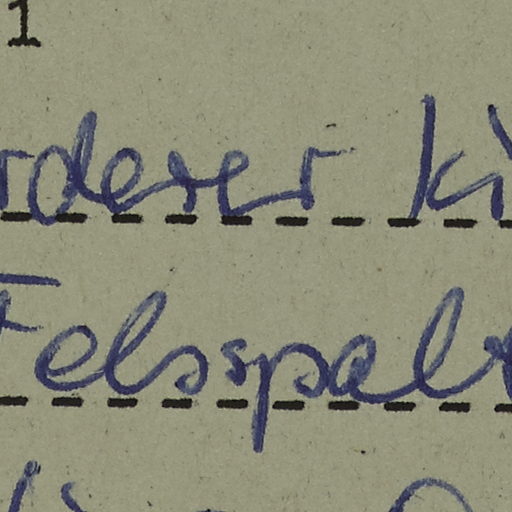 1
rderer Ki
Felsspalt